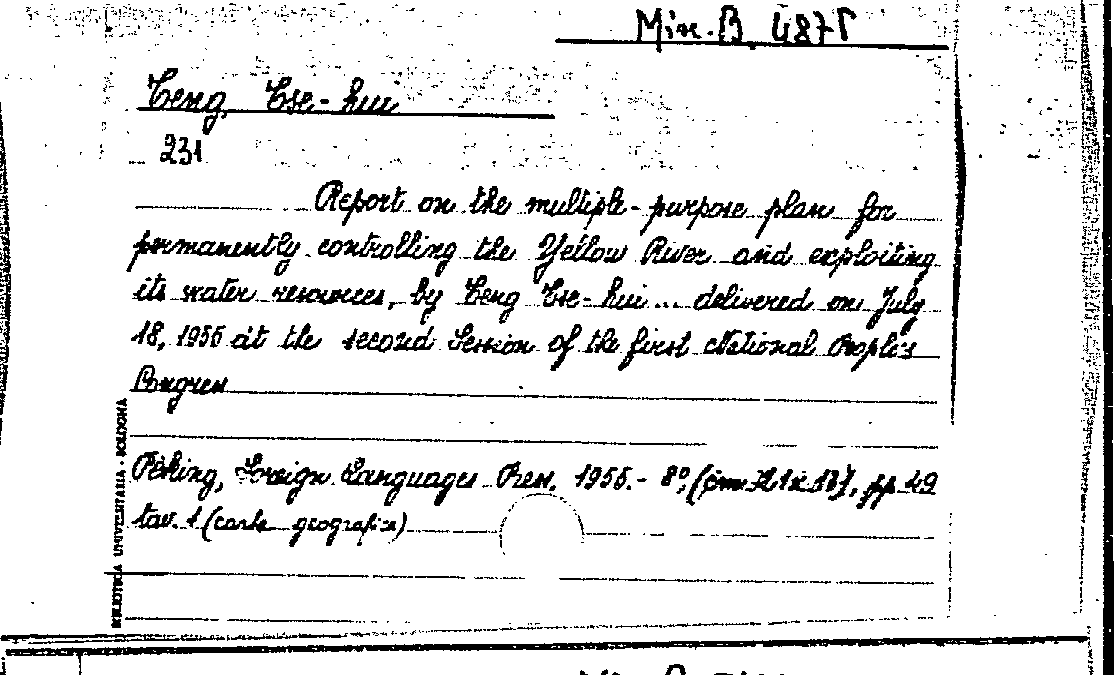 Misc. B. 4875
Teng, Tse-hui
231
Report on the multiple-purpose plan for
permanently controlling the Yellow River and exploiting
its water resources, by Teng Tse-hui... delivered on July
18, 1955 at the second Session of the first National People's
Congress
Peking, Foreign Languages Press, 1955.- 8°, (cm 21x13), pp. 49
tav. 1 (carta geografica)
BIBLIOTECA UNIVERSITARIA - BOLOGNA